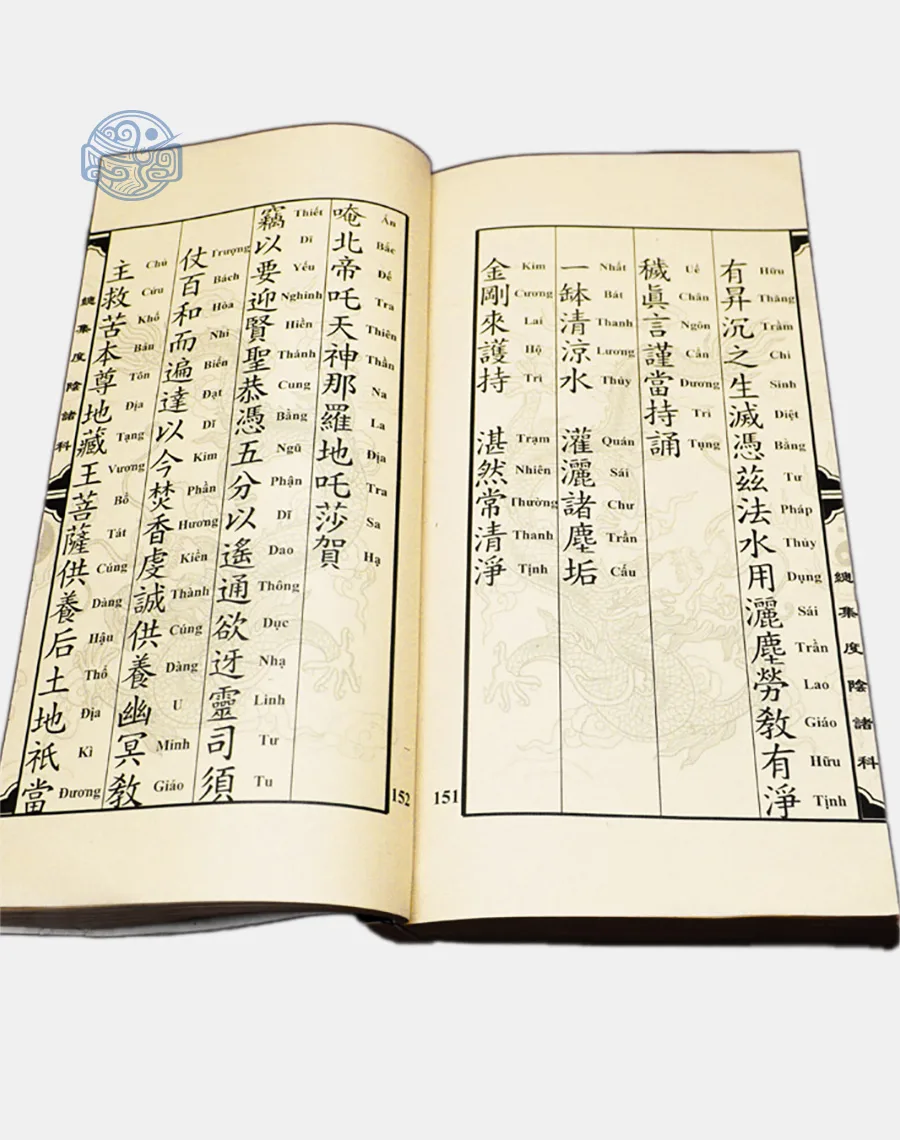 總集度陰諸科
有昇沉之生滅憑茲法水用灑塵勞教有淨
Hữu Thăng Trầm Chi Sinh Diệt Bằng Tư Pháp Thủy Dụng Sái Trần Lao Giáo Hữu Tịnh
穢眞言謹當持誦
Uế Chân Ngôn Cẩn Dương Trì Tụng
一缽清涼水 灌灑諸塵垢
Nhất Bát Thanh Lương Thủy Quán Sái Chư Trần Cấu
金剛來護持 湛然常清淨
Kim Cương Lai Hộ Trì Trạm Nhiên Thường Thanh Tịnh
151
唵北帝吒天神那羅地吒莎賀
Án Bắc Đế Tra Thiên Thần Na La Địa Tra Sa Hạ
竊以要迎賢聖恭憑五分以遙通欲迓靈司須
Thiết Dĩ Yếu Nghinh Hiền Thánh Cung Bằng Ngũ Phận Dĩ Dao Thông Dục Nhạ Linh Tư Tu
仗百和而遍達以今焚香虔誠供養幽冥教
Trượng Bách Hòa Nhi Biến Đạt Dĩ Kim Phần Hương Kiền Thành Cúng Dàng U Minh Giáo
主救苦本尊地藏王菩薩供養后土地祇當
Chủ Cứu Khổ Bản Tôn Địa Tạng Vương Bồ Tát Cúng Dàng Hậu Thổ Địa Kì Đương
總集度陰諸科
152